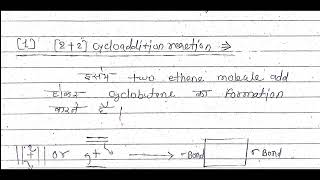 [1] [2+2] cycloaddition reaction ⇒
इसमे two ethene molecule add
होकर cyclobutene का formation
करते है |
|| + || or = + = → σ Bond □ σ Bond